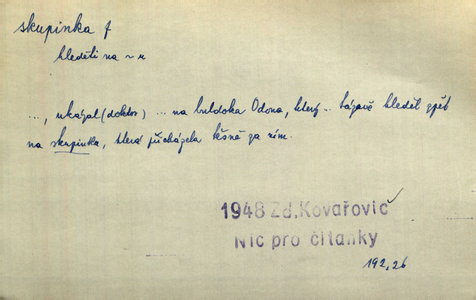 skupinka f
hleděti na ~ u
..., ukázal (doktor) ... na buldoka Odona, který .. tázavě hleděl zpět
na skupinku, která přicházela těsně za ním.
1948 Zd. Kovařovič
Nic pro čítanky
192,26